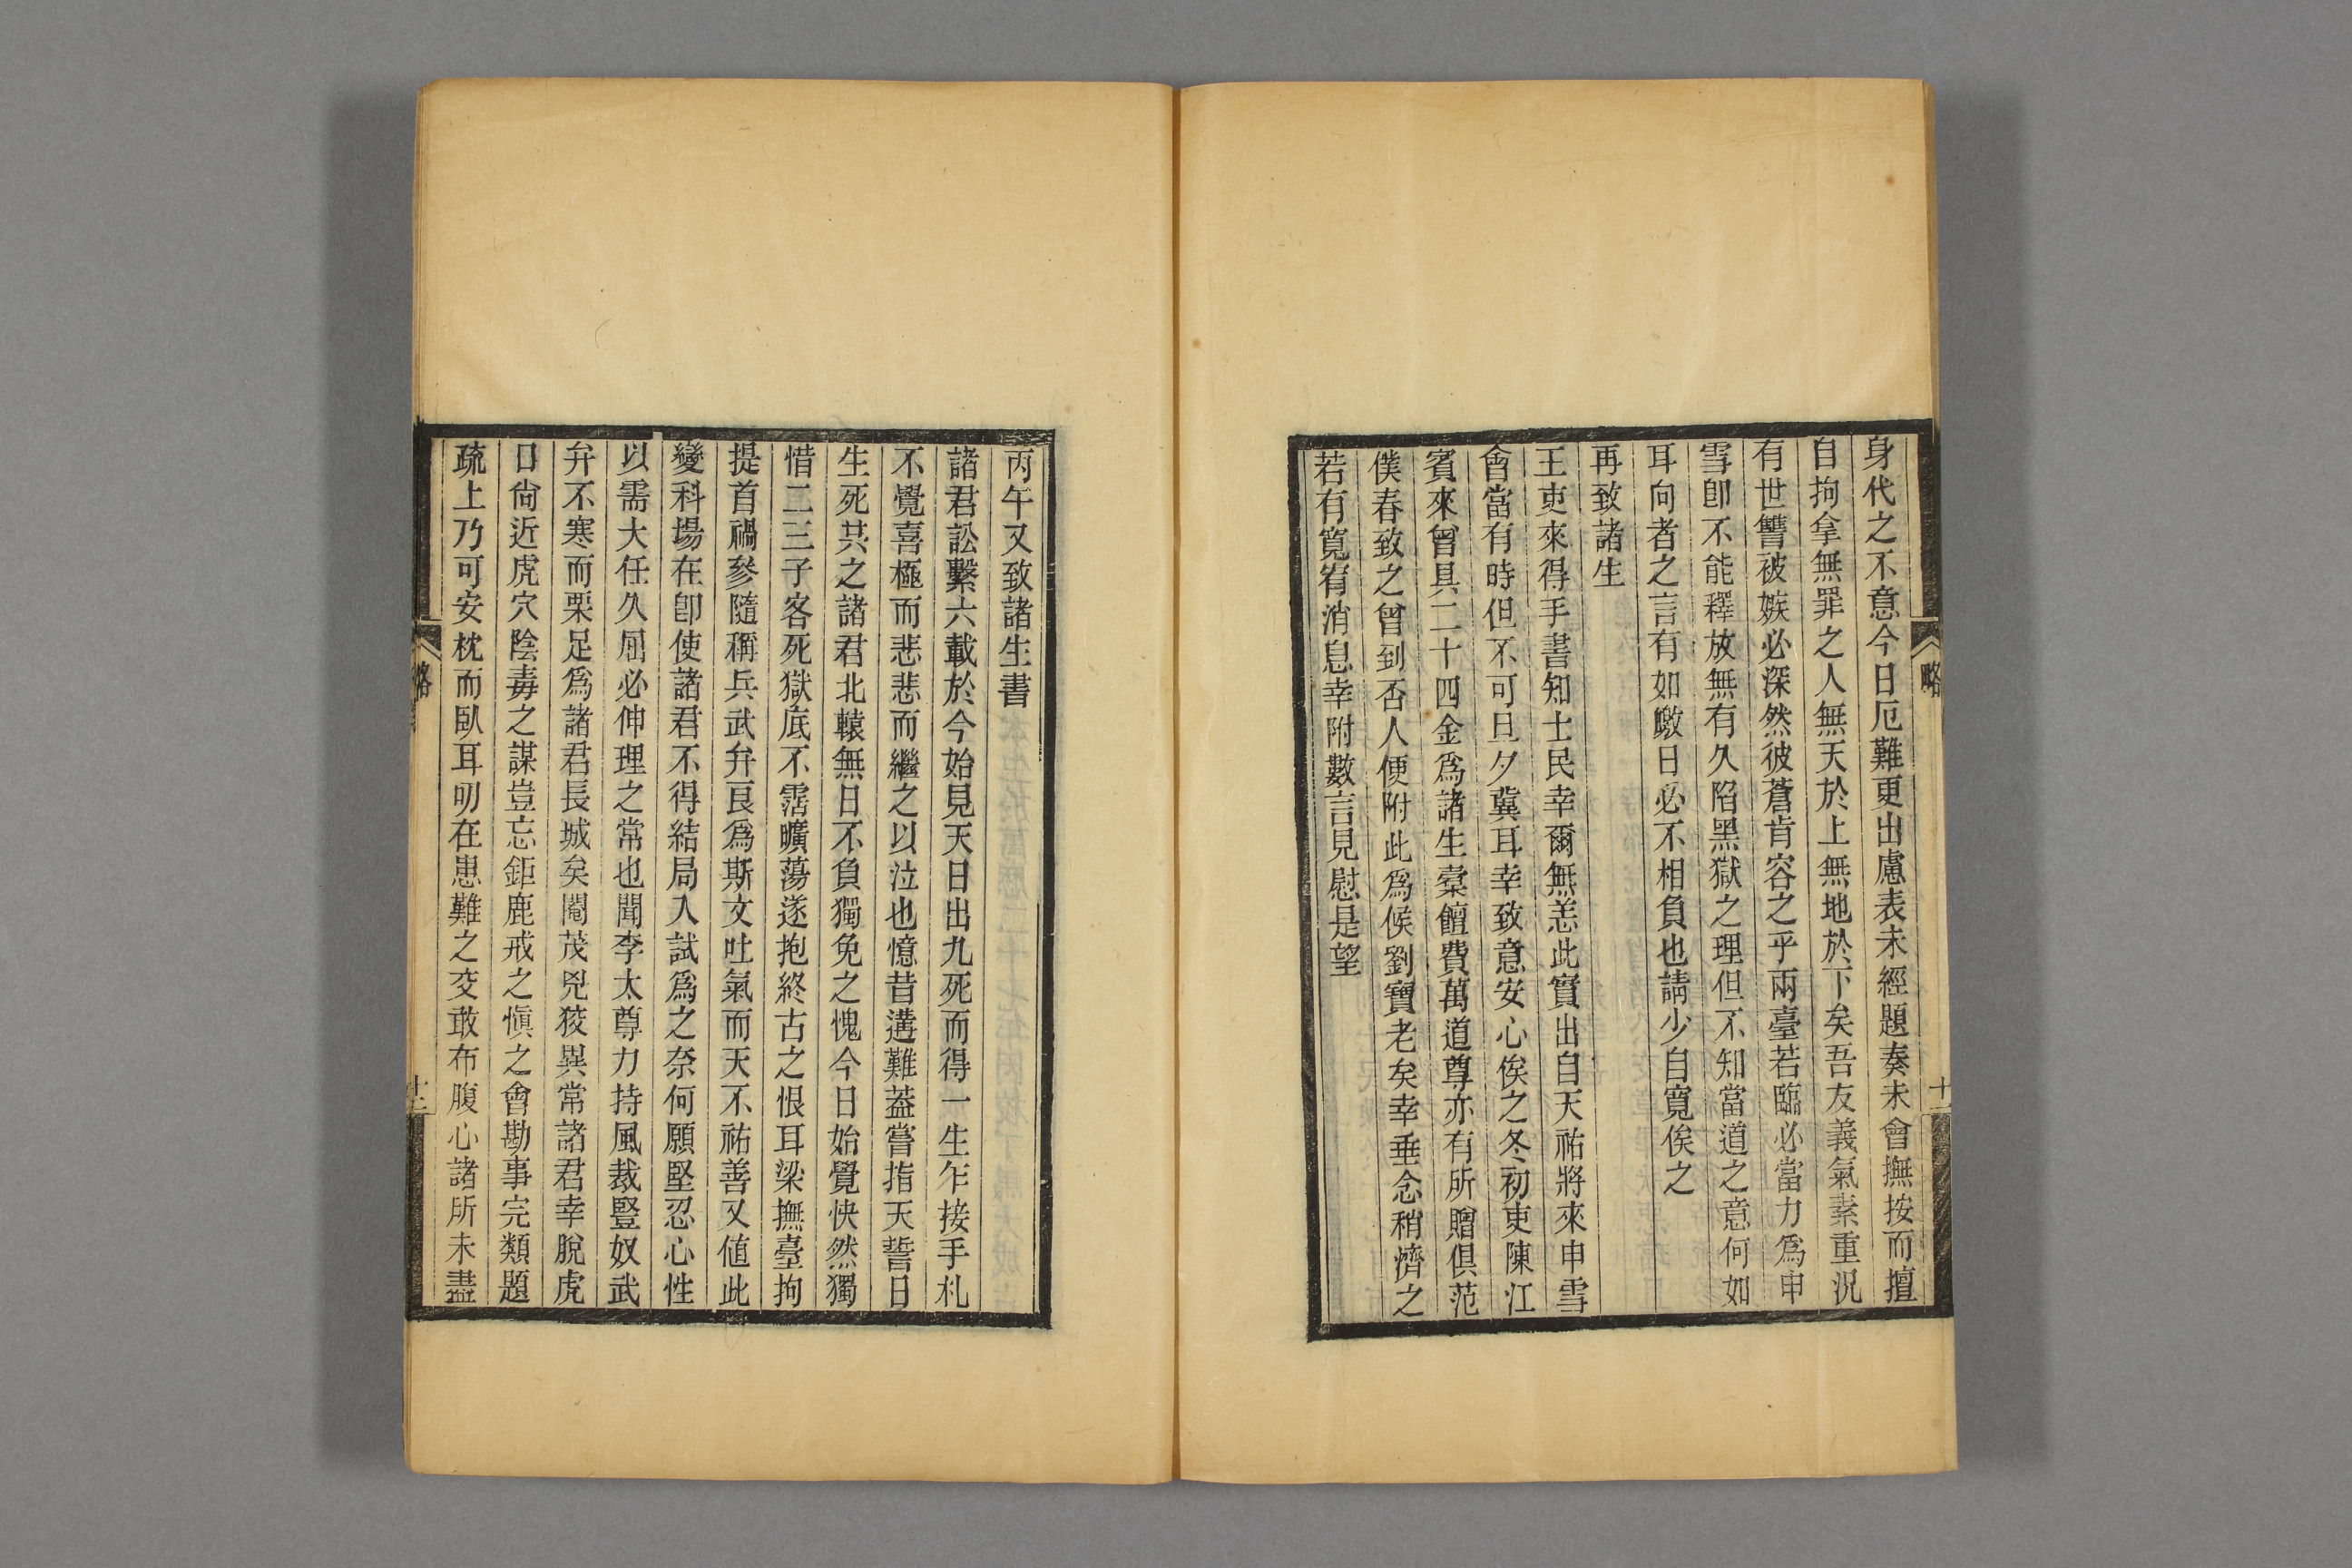 身代之不意今日厄難更出慮表未經題奏未會撫按而擅
自拘拿無罪之人無天於上無地於下矣吾友義氣素重況
有世讐被嫉必深然彼蒼肯容之乎兩臺若臨必當力爲申
雪卽不能釋放無有久陷黑獄之理但不知當道之意何如
耳向者之言有如皦日必不相負也請少自寬俟之
再致諸生
王吏來得手書知士民幸爾無恙此實出自天祐將來申雪
會當有時但不可旦夕冀耳幸致意安心俟之冬初吏陳江
賓來曾具二十四金爲諸生槖饘費萬道尊亦有所贈俱范
僕春致之曾到否人便附此爲候劉寶老矣幸垂念稍濟之
若有寬宥消息幸附數言見慰是望
略
十一
丙午又致諸生書
諸君訟繫六載於今始見天日出九死而得一生乍接手札
不覺喜極而悲悲而繼之以泣也憶昔遘難葢嘗指天誓日
生死共之諸君北轅無日不負獨免之愧今日始覺快然獨
惜二三子客死獄底不霑曠蕩遂抱終古之恨耳梁撫臺拘
提首禍參隨稱兵武弁良爲斯文吐氣而天不祐善又値此
變科場在卽使諸君不得結局入試爲之奈何願堅忍心性
以需大任久屈必伸理之常也聞李太尊力持風裁豎奴武
弁不寒而栗足爲諸君長城矣閹茂兇狡異常諸君幸脫虎
口尙近虎穴陰毒之謀豈忘鉅鹿戒之愼之會勘事完類題
疏上乃可安枕而臥耳叨在患難之交敢布腹心諸所未盡
略
十二